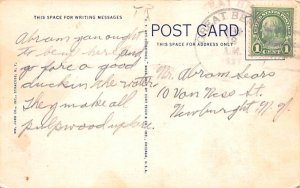 THIS SPACE FOR WRITING MESSAGES
POST CARD
THIS SPACE FOR ADDRESS ONLY
Abram you ought
to be up here and
go for a good
duck in the water
They make all
pulpwood up here.
Mr. Abram Sears
10 Van Ness St.
Newburgh N.Y.
1 CENT 1